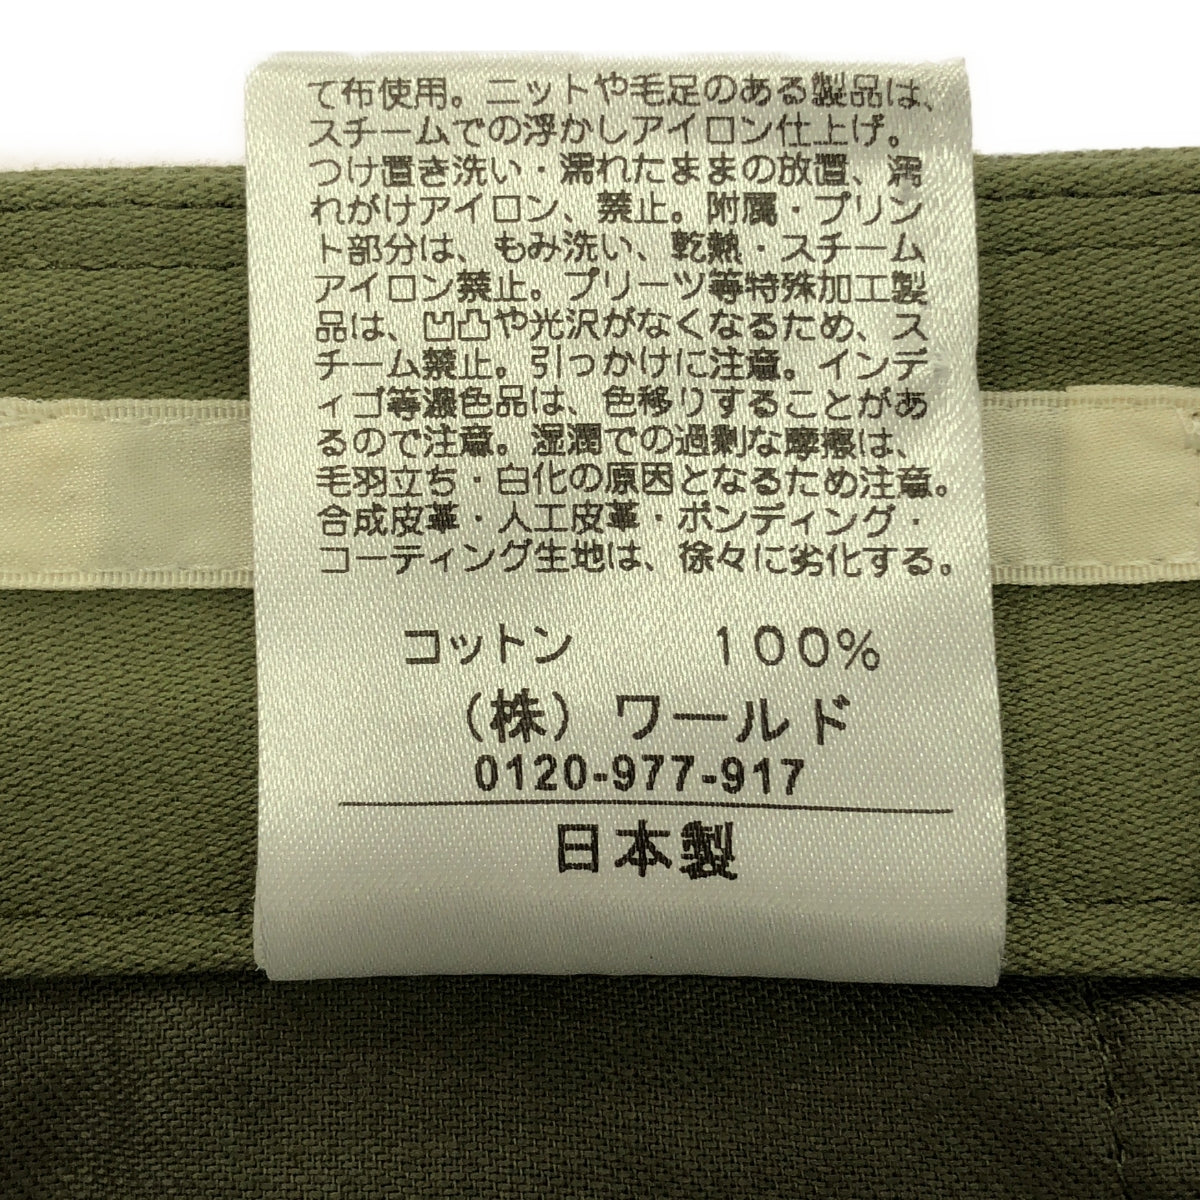 て布使用。ニットや毛足のある製品は、
スチームでの浮かしアイロン仕上げ。
つけ置き洗い・濡れたままの放置、濡
れがけアイロン、禁止。附属・プリン
ト部分は、もみ洗い、乾熱・スチーム
アイロン禁止。プリーツ等特殊加工製
品は、凹凸や光沢がなくなるため、ス
チーム禁止。引っかけに注意。インデ
ィゴ等濃色品は、色移りすることがあ
るので注意。湿潤での過剰な摩擦は、
毛羽立ち・白化の原因となるため注意。
合成皮革・人工皮革・ボンディング・
コーティング生地は、徐々に劣化する。
コットン 100%
(株)ワールド
0120-977-917
日本製